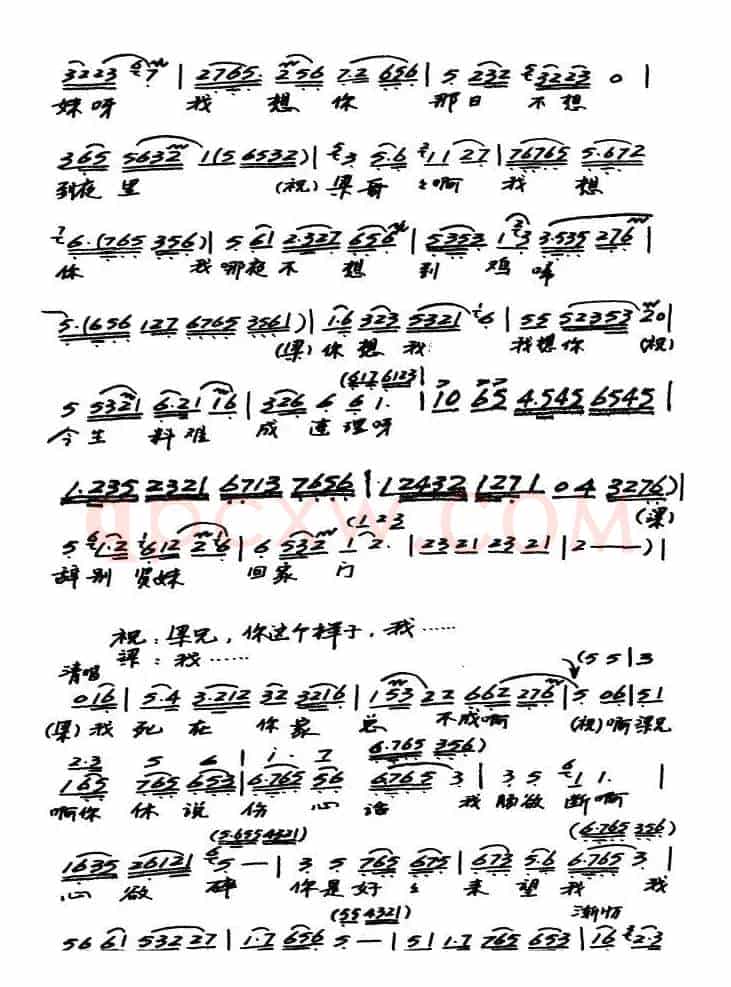 3223 6 7 | 2765. 256 7.2 656 | 5 232 5 3223 0 |
妹呀 我 想 你 那日 不想
365 5632 1(5 6532) | 5 3 5.6 2 11 27 | 76765 5.672
到夜里 (祝)梁哥 啊 我 想
7 6.(765 356) | 5 61 2.327 656 | 5353 1 2 3 3.535 276 |
你 我哪夜不 想 到 鸡啼
5.(656 127 6765 3561) | 1.6 323 5321 1 6 | 55 52353 20 |
(梁)你想我 我想你 (祝)
(617 6123)
5 5321 6.21 16 | 326 6 6 1. | 10 65 4.545 6545 |
今生 料难 成 连理呀
1.235 2321 6713 7656 | 1.2432 1271 04 3276) |
(梁)
(123)
5 6 1.2 1 612 2 6 | 6 532 1 2. | 2321 2321 | 2 — — ) |
辞别贤妹 回家门
祝:梁兄,你这个样子,我……
梁:我……
清唱 (55 | 3
016 | 5.4 3.212 32 3216 | 153 22 662 276 | 5 06 | 51
(梁)我 死 在 你 家 总 不成啊 (祝)啊梁兄
2.3 5 6 i. 7 6.765 356)
165 765 653 | 6.765 56 6765 3 | 3 5 6 1 1. |
啊你 休说 伤 心 话 我肠欲 断啊
(5.655 4321) (6.765 356)
1635 26121 6 5 — | 3 5 765 675 | 673 5.6 6.765 3 |
心 欲 碎 你是好 来 望我 我
(55 4321) 渐切
56 61 532 27 | 1.7 656 5 — | 51 1.7 765 653 | 16 2 2.3